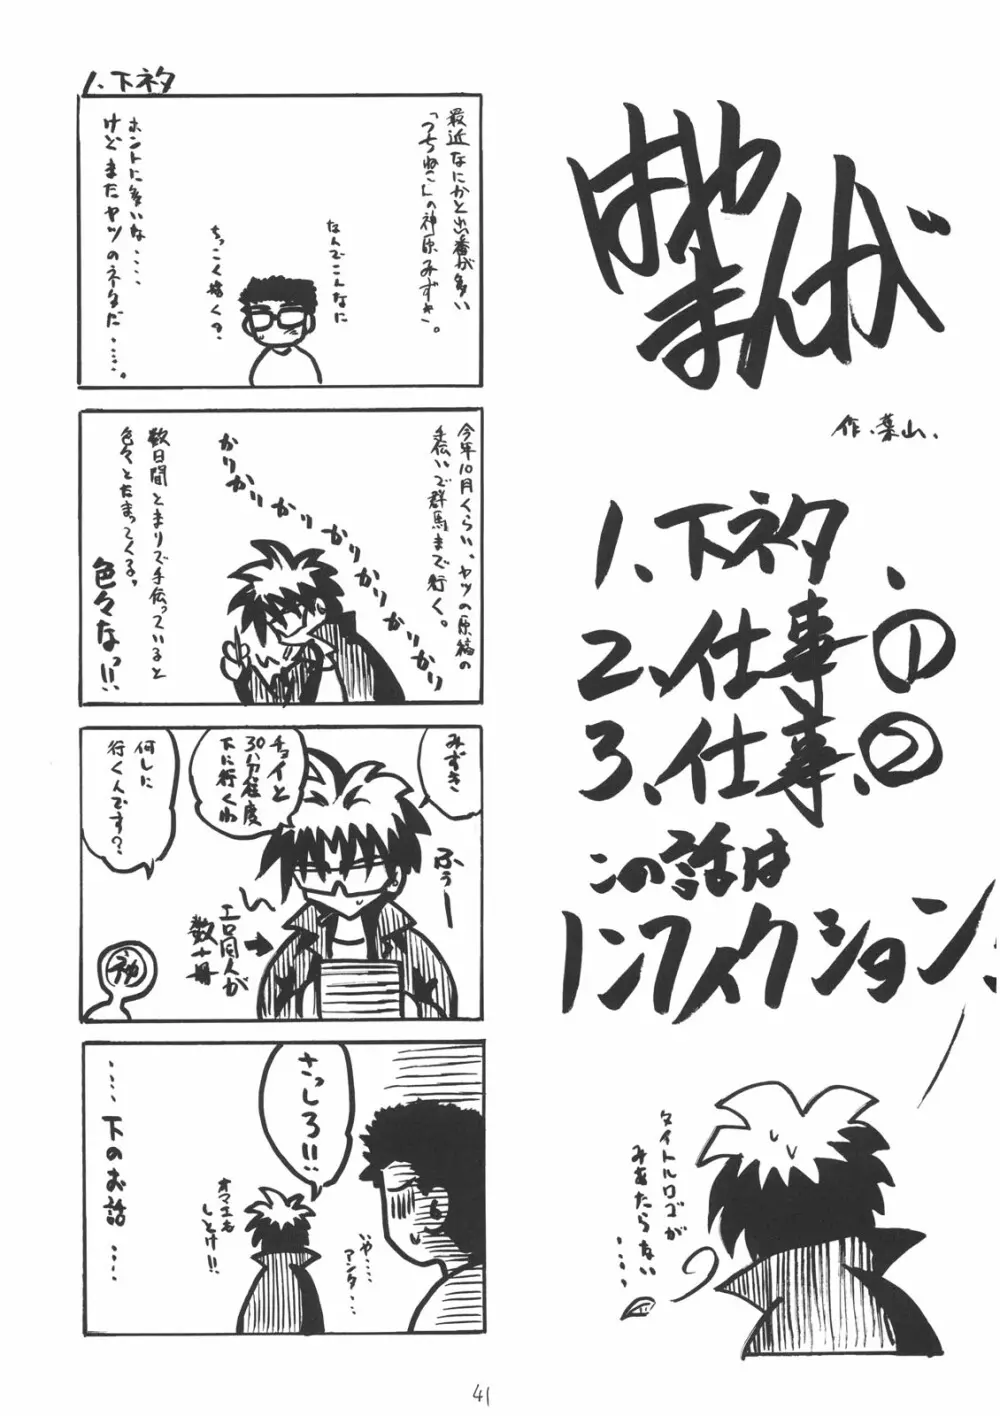 はや
まんが
作、葉山、
1、下ネタ
2、仕事、①
3、仕事、②
この話は
ノンフィクション、
タイトルロゴが
みあたらない
・・・・
1、下ネタ
最近なにかと出番が多い
「つちねこ」の神原みずき。
なんでこんなに
ちっこく描く?
ホントに多いな・・・・
けどまたヤツのネタだ・・・・。
今年10月くらい、ヤツの原稿の
手伝いで群馬まで行く。
かりかりかりかりかりかりかりかり
数日間とまりで手伝っていると
色々とたまってくる。
色々なっ!!
みずき
チョイと
30分程度
下に行くわ
ふぅー
何しに
行くんです?
エロ同人が
数十冊
さっしろ!!
オマエも
しとけ!!
いや・・・・
アンタ・・・
・・・・下のお話・・・・
41